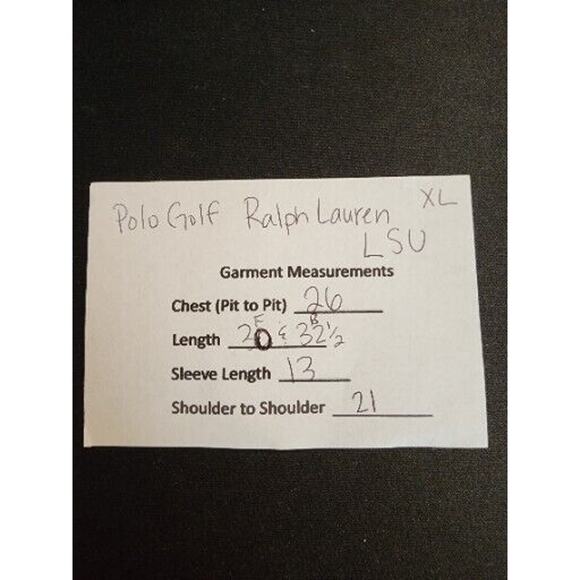 Polo Golf Ralph Lauren XL
LSU
Garment Measurements
Chest (Pit to Pit) 26
F B
Length 20 & 32 1/2
Sleeve Length 13
Shoulder to Shoulder 21